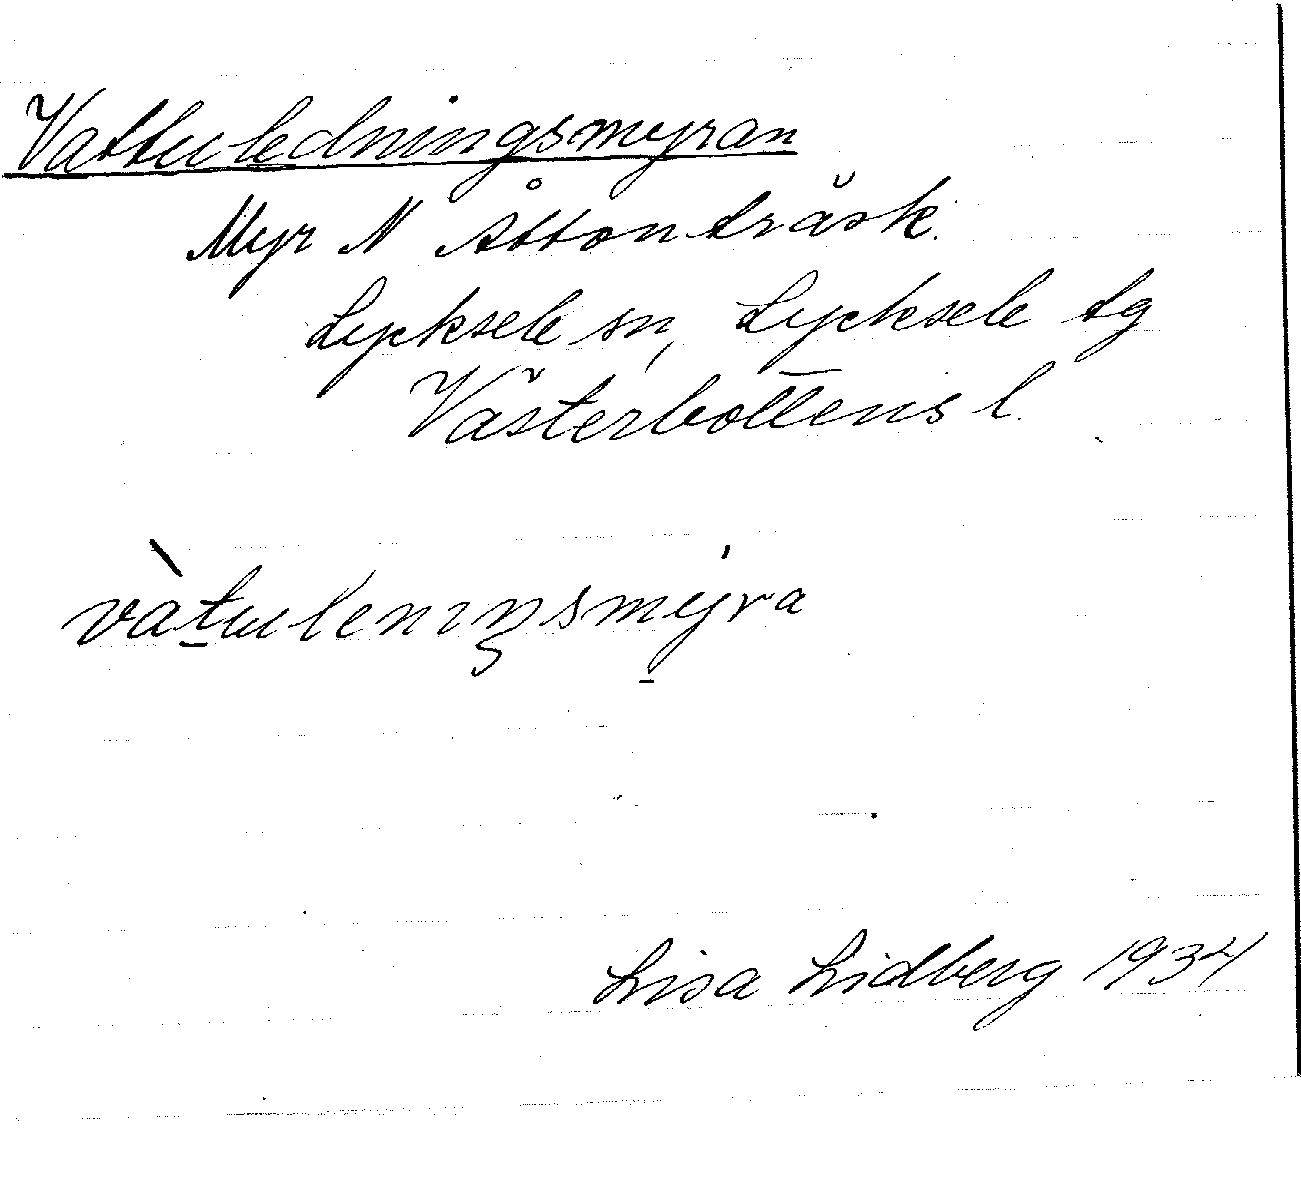 Vattuledningsmyran
Myr N Åttonträsk.
Lycksele sn, Lycksele tg
Västerbottens l.
vàtuleniŋsmyra
Lisa Lidberg 1934